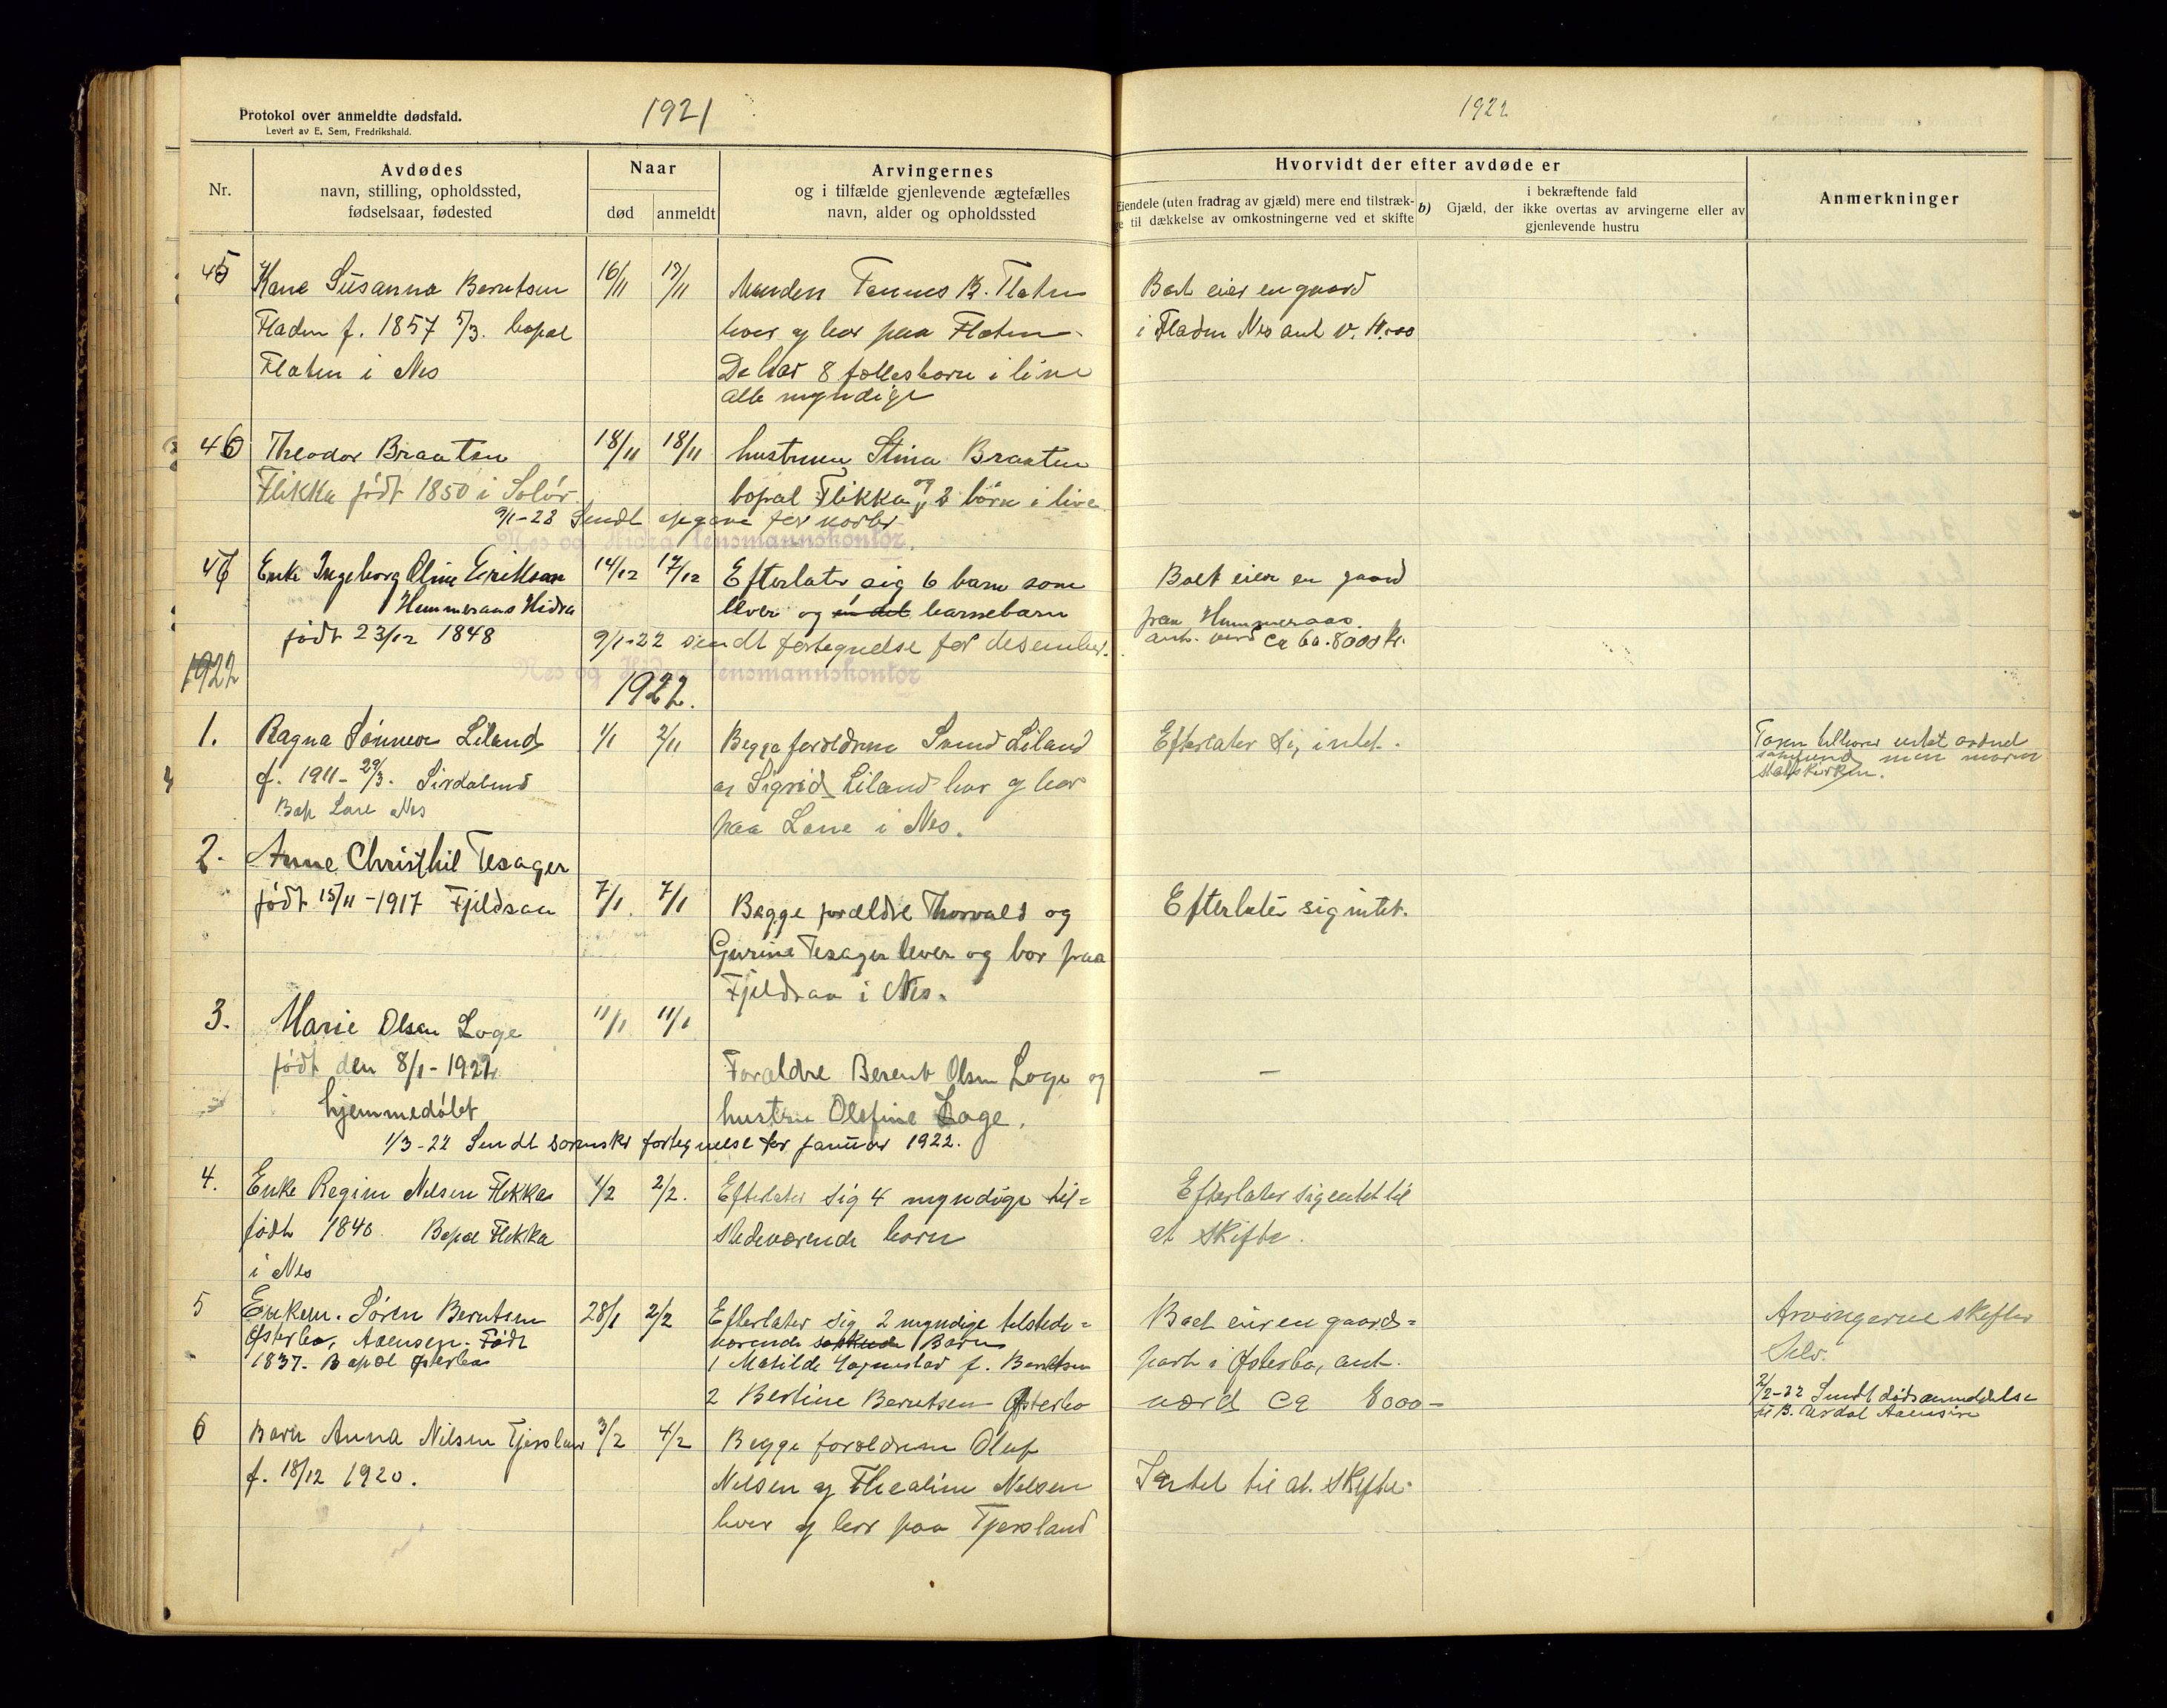 Protokol over anmeldte dødsfald.
Levert av E. Sem, Fredrikshald.
1921
1922
Nr.
Avdødes
navn, stilling, opholdssted,
fødselsaar, fødested
Naar
død
anmeldt
Arvingernes
og i tilfælde gjenlevende ægtefælles
navn, alder og opholdssted
Hvorvidt der efter avdøde er
Eiendele (uten fradrag av gjæld) mere end tilstræk-
til dækkelse av omkostningerne ved et skifte
b) i bekræftende fald
Gjæld, der ikke overtas av arvingerne eller av
gjenlevende hustru
Anmerkninger
45 Kone Susanna Berntsen 16/11 17/11 Manden B. Flaten
Fladen f. 1857 5/3. bopæl
Flaten i Nes
lever og bor paa Flaten
De har 8 fællesbørn i live
alle myndige
Boet eier en gaard
i Fladen Nes ant v.
46 Theodor Braaten 18/11 18/11 hustruen Stina Braaten
Flikka født 1850 i Solør
bopæl Flikka og 2 børn i live
9/1-22 Sendt opgave for novbr
Nes og Hidra lensmannskontor.
47 Enke Ingeborg Oline Eriksen 14/12 17/12 Efterlater sig 6 barn som
Hummeraas Hidra
lever og en del barnebarn
født 23/12 1848
9/1-22 sendt fortegnelse for desember.
Nes og Hidra lensmannskontor
Boet eier en gaard
paa Hummeraas.
ant. verd ca 8000 kr.
1922
1922.
1. Ragna Sønneve Liland 1/1 2/11 Begge forældrene Svend Liland
f. 1911 - 29/3. Sirdalens
Bop Lone Nes
og Sigrid Liland lever og bor
paa Lone i Nes.
Efterlater sig intet.
men moren
statskirken.
2. Anne Christhil Tesager
født 15/11 - 1917 Fjeldsaa 7/1. 7/1 Begge forældre Thorvald og
Gurine Tesager lever og bor paa
Fjeldsaa i Nes.
Efterlater sig intet.
3. Marie Olsen Loge 11/1 11/1
født den 8/1 - 1922
hjemmedøbt
Forældre Berent Olsen Loge og
hustru Olefine Loge.
—
1/3-22 Sendt sorenskr fortegnelse for januar 1922.
4. Enke Regine Nilsen Flikka 1/2 2/2. Efterlater sig 4 myndige til=
født 1840. Bopæl Flikka
i Nes
stedeværende børn
Efterlater sig intet til
at skifte.
5 Enkem. Søren Berntsen 28/1 2/2 Efterlater sig 2 myndige tilstede=
Østerbø, Aaensen. Født
1837. Bopæl Østerbø
værende Børn
1 Matilde f. Berntsen
2 Bertine Berntsen Østerbø
Boet eier en gaard=
part i Østerbø, ant.
værd ca 8000-
Arvingerne skifter
Selv.
2/2-22 Sendt dødsanmeldelse
til B. Urdal Aaensire
6 Barn Anna Nilsen Tjersland 3/2 4/2 Begge forældrene Oluf
f. 18/12 1920.
Nilsen og Thealine Nilsen
lever og bor paa Tjersland
Intet til at skifte.